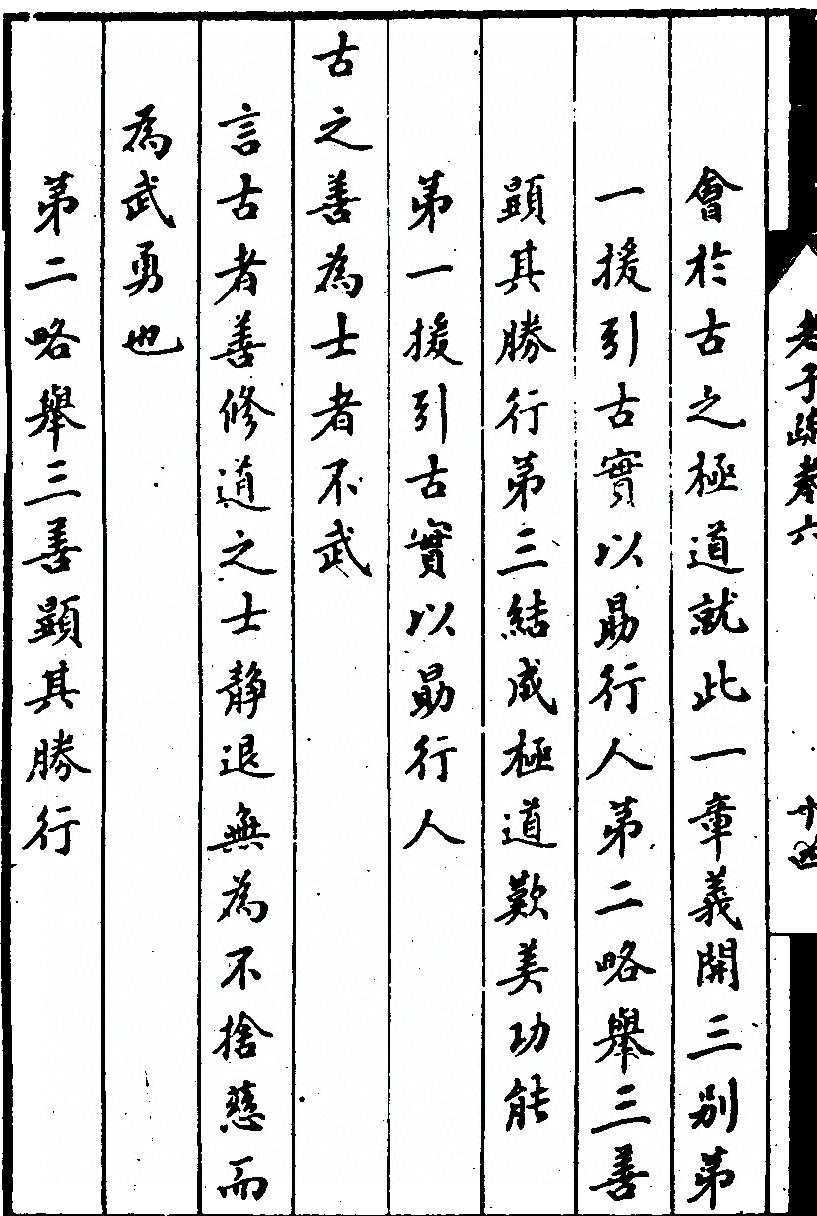 老子疏卷六 十四
會於古之極道就此一章義開三別第
一援引古實以勗行人第二略舉三善
顯其勝行第三結成極道歎美功能
第一援引古實以勗行人
古之善為士者不武
言古者善修道之士靜退無為不捨慈而
為武勇也
第二略舉三善顯其勝行